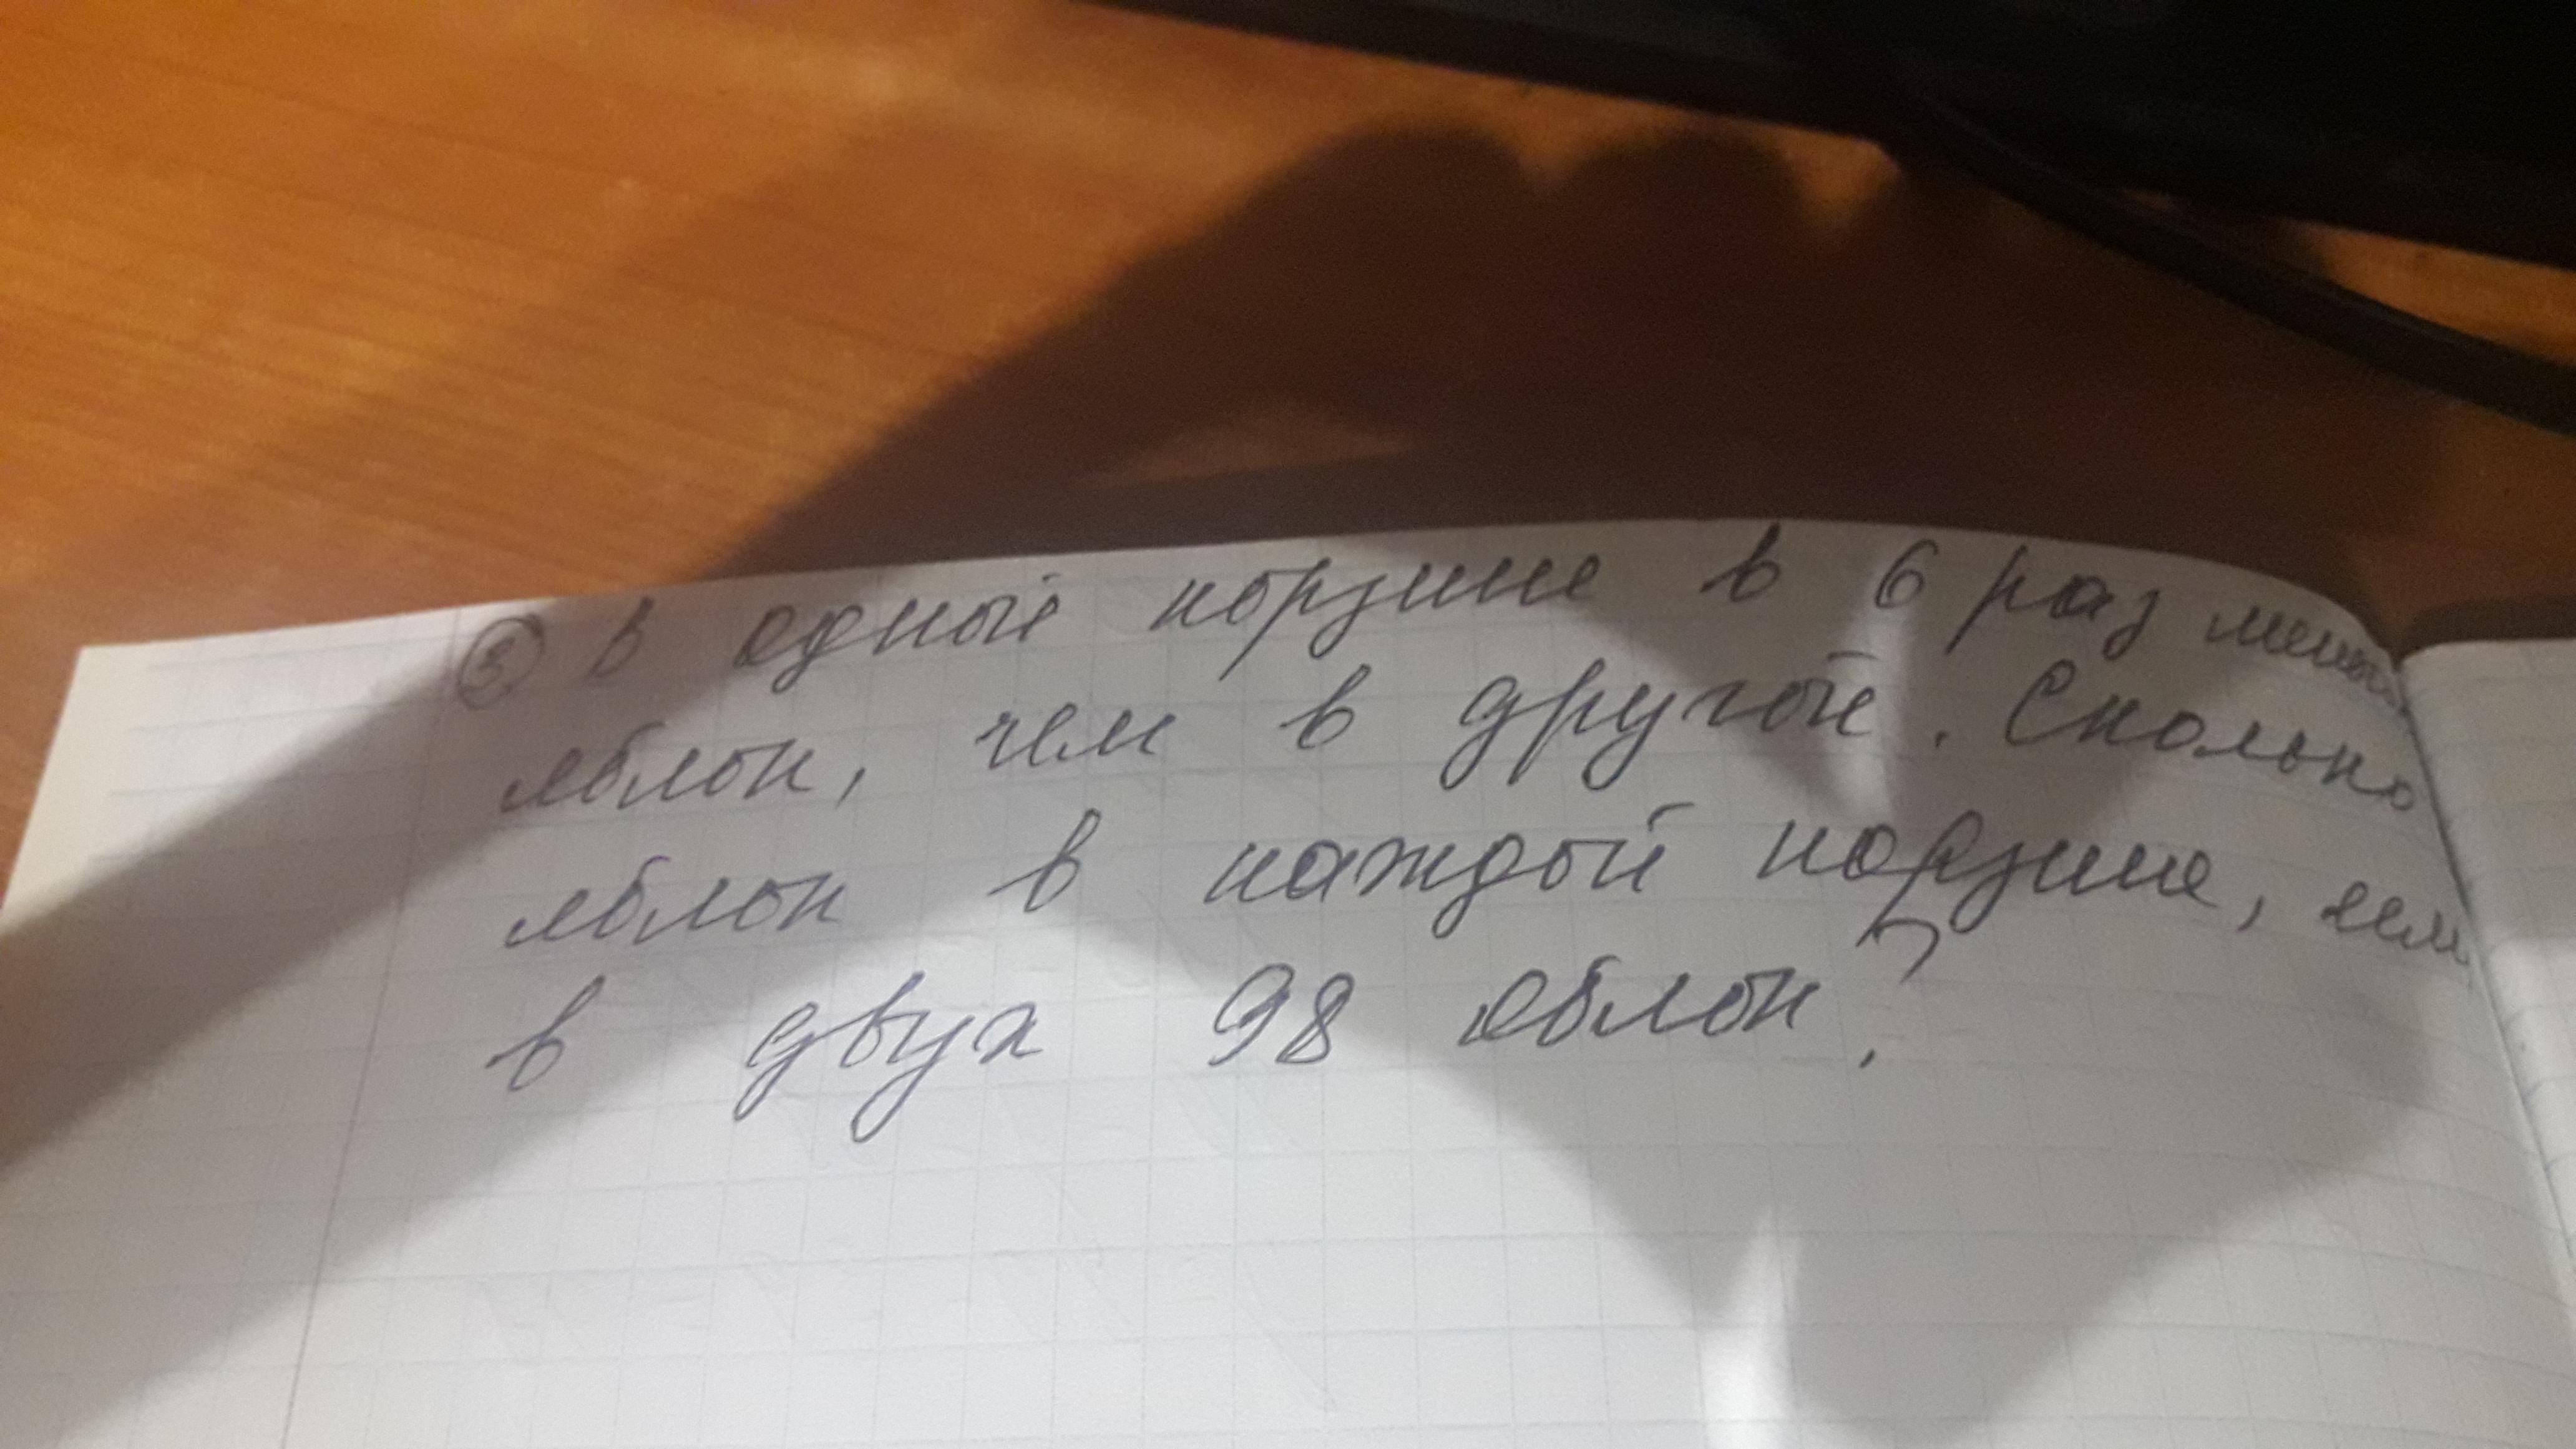 ③ В одной корзине в 6 раз меньше
яблок, чем в другой. Сколько
яблок в каждой корзине, если
в двух 98 яблок?